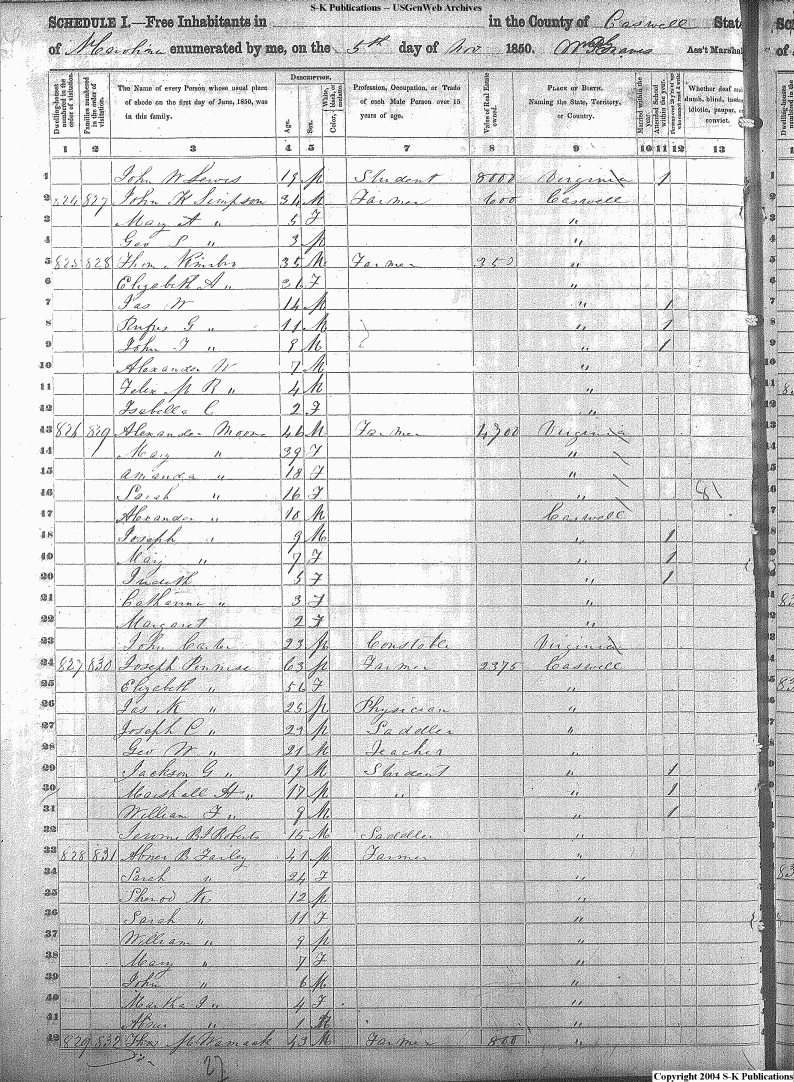 S-K Publications -- USGenWeb Archives
SCHEDULE I.—Free Inhabitants in in the County of Caswell State
of N. Caroline enumerated by me, on the 5th day of Nov 1850. Ass't Marshal
Dwelling-houses numbered in the order of visitation.
Families numbered in the order of visitation.
The Name of every Person whose usual place of abode on the first day of June, 1850, was in this family.
Description.
Age.
Sex.
Color, White, black, or mulatto.
Profession, Occupation, or Trade of each Male Person over 15 years of age.
Value of Real Estate owned.
Place of Birth. Naming the State, Territory, or Country.
Married within the year.
Attended School within the year.
Whether deaf and dumb, blind, insane, idiotic, pauper, or convict.
1 2 3 4 5 6 7 8 9 10 11 12 13
1 John W Lewis 19 M Student 8000 Virginia 1
2 824 827 John K Simpson 34 M Farmer 600 Caswell
3 Mary A " 5 F "
4 Geo S " 3 M "
5 825 828 Thom 35 M Farmer 350 "
6 Elizabeth A " 36 F "
7 Jas W 14 M " 1
8 Rufus G " 11 M " 1
9 John F " 9 M " 1
10 Alexander W 7 M "
11 Felix M R " 4 M "
12 Isabella C 2 F "
13 826 829 Alexander Moore 46 M Farmer Virginia
14 Mary " 39 F "
15 Amanda " 18 F "
16 Sarah " 16 F " 81
17 Alexander " 10 M Caswell
18 Joseph " 9 M " 1
19 May " 7 F " 1
20 Judeth 5 F " 1
21 Catharine " 3 F "
22 Margaret 2 F "
23 John Carter 23 M Constable Virginia
24 827 830 Joseph 63 M Farmer 2375 Caswell
25 Elizabeth " 56 F "
26 Jas M " 25 M Physician "
27 Joseph C " 23 M Saddler "
28 Geo W " 21 M Teacher "
29 Jackson G " 19 M Student " 1
30 Marshall H " 17 M " " 1
31 William F " 9 M " 1
32 Jerome B Roberts 15 M Saddler "
33 828 831 Abner B Farley 41 M Farmer "
34 Sarah " 24 F "
35 Sherod 12 M "
36 Sarah " 11 F "
37 William " 9 M "
38 Mary " 7 F "
39 John " 6 M "
40 Martha J " 4 F "
41 Abner " 1 M "
42 829 832 Thos M Wamack 43 M Farmer 800 "
Copyright 2004 S-K Publications